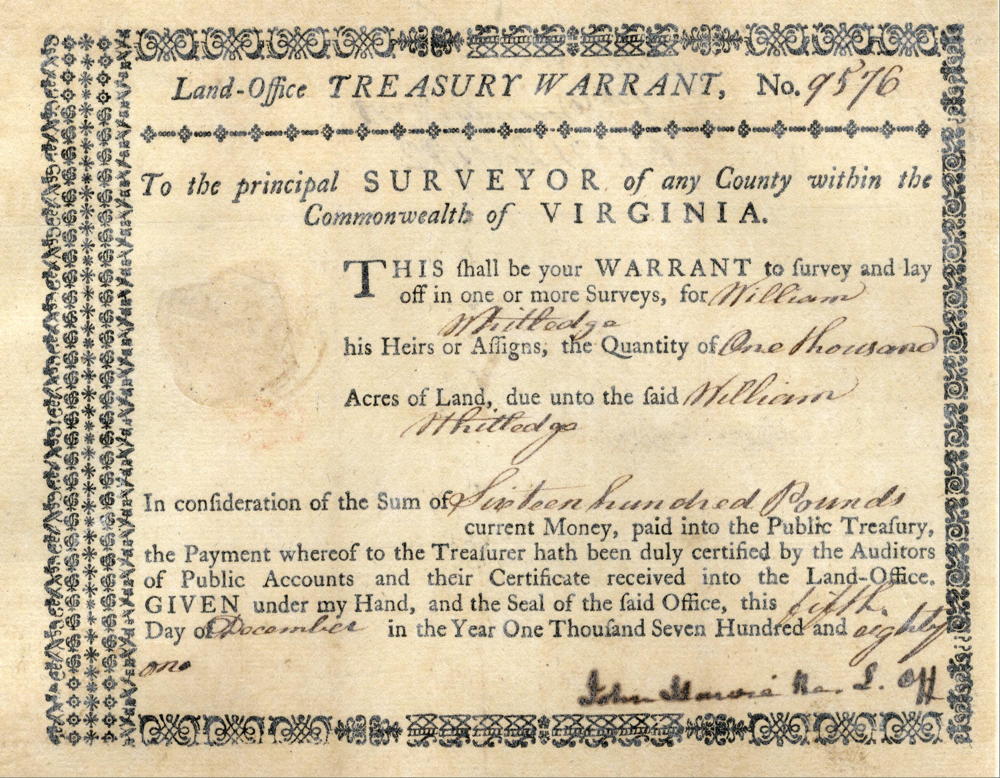 Land-Office TREASURY WARRANT, No. 9576
To the principal SURVEYOR of any County within the
Commonwealth of VIRGINIA.
THIS ſhall be your WARRANT to ſurvey and lay
off in one or more Surveys, for William
Whitledge
his Heirs or Aſſigns, the Quantity of One thousand
Acres of Land, due unto the ſaid William
Whitledge
In conſideration of the Sum of Sixteen hundred Pounds
current Money, paid into the Public Treaſury,
the Payment whereof to the Treaſurer hath been duly certified by the Auditors
of Public Accounts and their Certificate received into the Land-Office.
GIVEN under my Hand, and the Seal of the ſaid Office, this fifth
Day of December in the Year One Thouſand Seven Hundred and eighty
one
John Harvie Re. L. Off